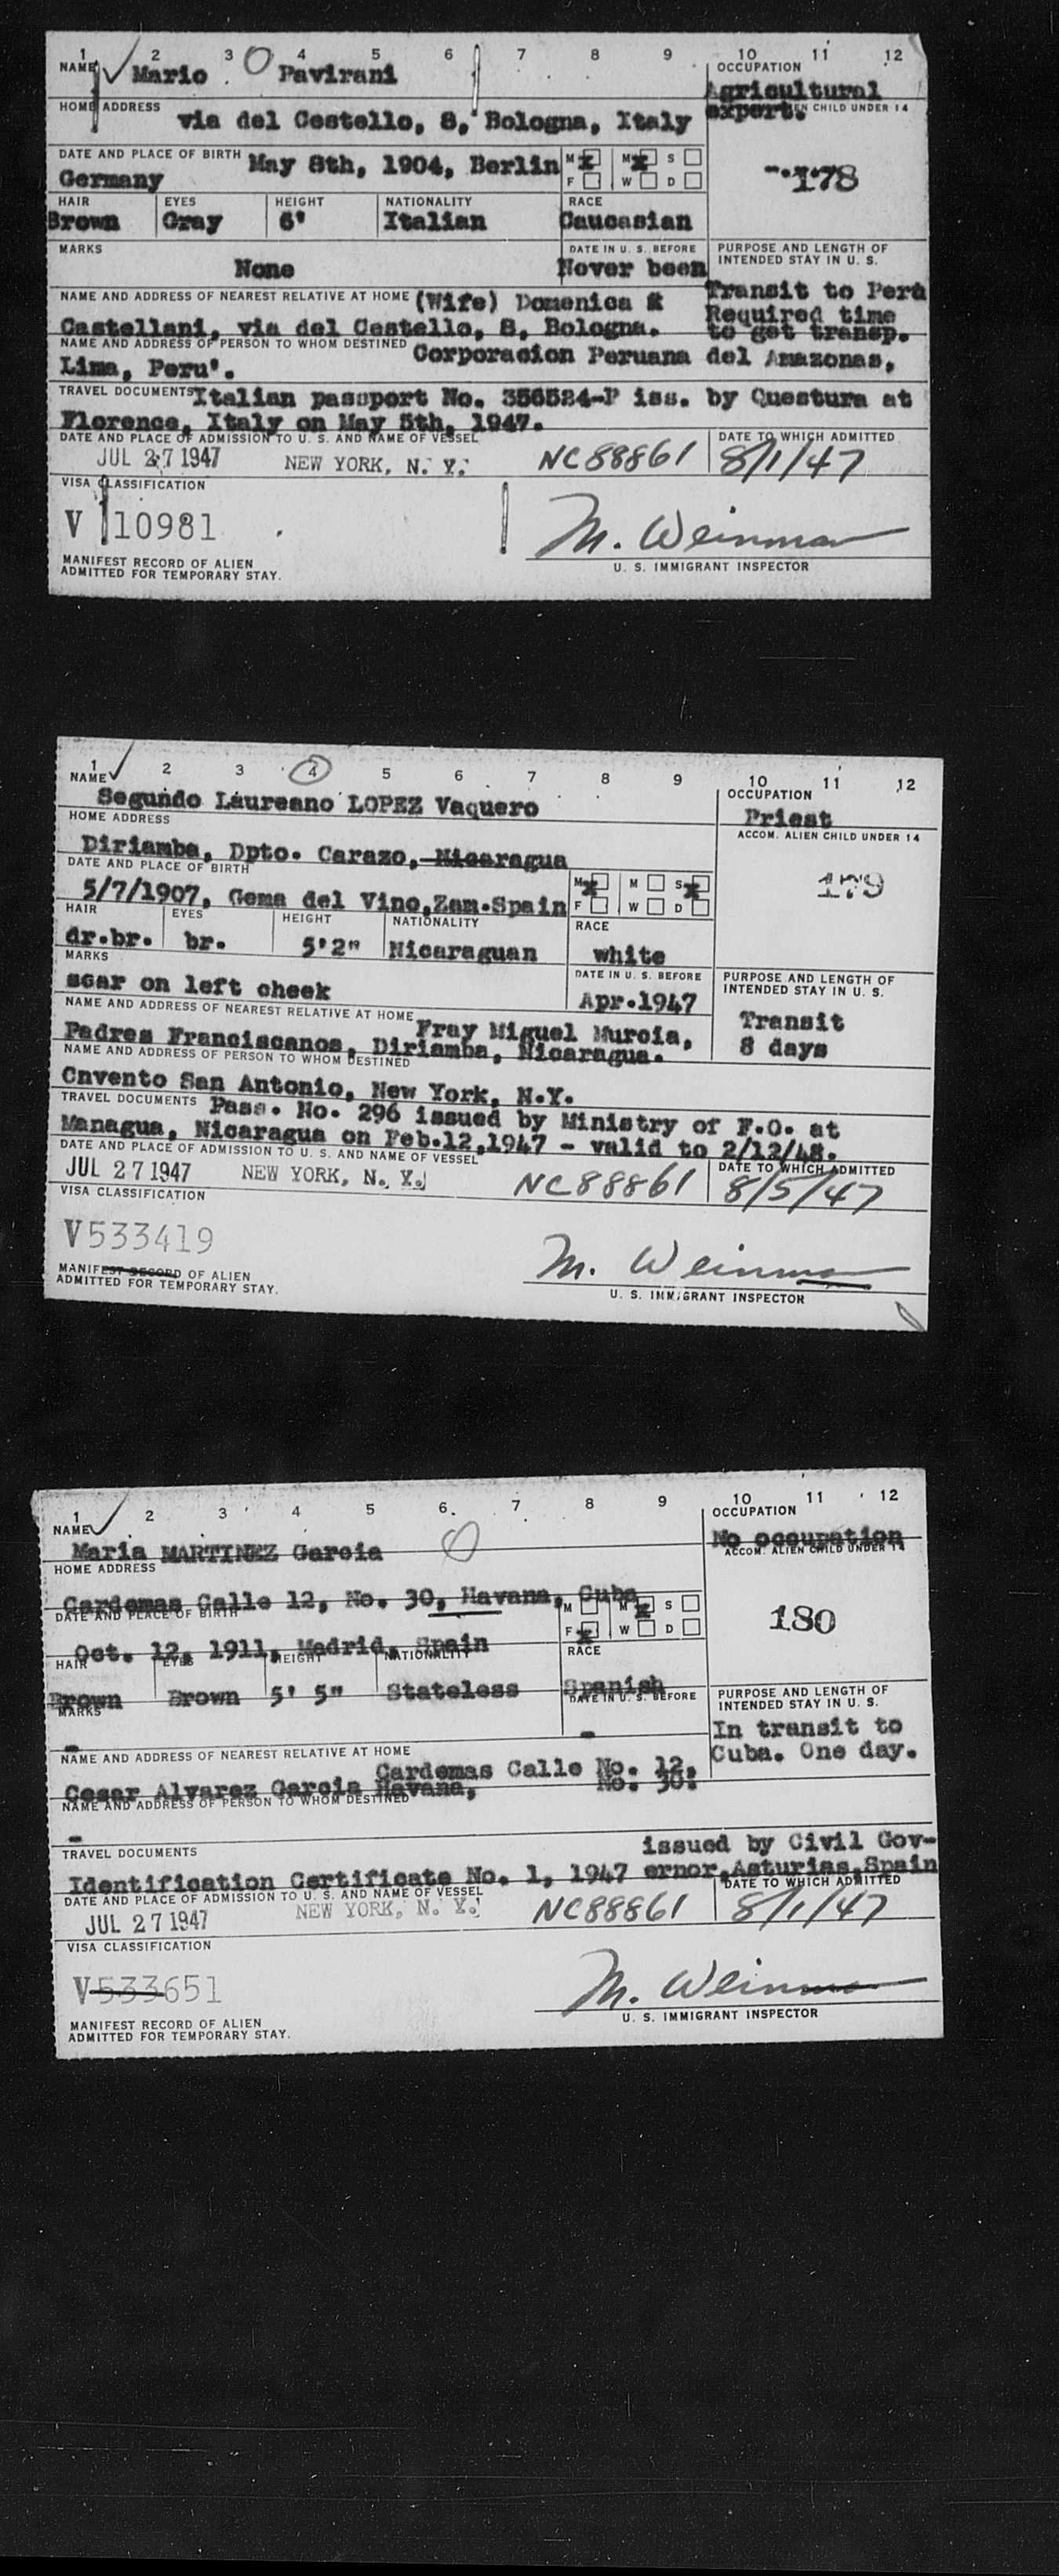 1 2 3 4 5 6 7 8 9 10 11 12
NAME Mario Pavirani OCCUPATION Agricultural
HOME ADDRESS via del Cestello, 8, Bologna, Italy expert. CHILD UNDER 14
DATE AND PLACE OF BIRTH May 8th, 1904, Berlin M X M X S
Germany F W D 178
HAIR EYES HEIGHT NATIONALITY RACE
Brown Gray 6' Italian Caucasian
MARKS DATE IN U. S. BEFORE PURPOSE AND LENGTH OF INTENDED STAY IN U. S.
None Never been
NAME AND ADDRESS OF NEAREST RELATIVE AT HOME (Wife) Domenica Transit to Perù
Required time
Castellani, via del Cestello, 8, Bologna. to get transp.
NAME AND ADDRESS OF PERSON TO WHOM DESTINED Corporacion Peruana del Amazonas,
Lima, Peru'.
TRAVEL DOCUMENTS Italian passport No. 356524-P iss. by Questura at
Florence, Italy on May 5th, 1947.
DATE AND PLACE OF ADMISSION TO U. S. AND NAME OF VESSEL DATE TO WHICH ADMITTED
JUL 27 1947 NEW YORK, N. Y. NC88861 8/1/47
VISA CLASSIFICATION
V 110981 M. Weinman
MANIFEST RECORD OF ALIEN U. S. IMMIGRANT INSPECTOR
ADMITTED FOR TEMPORARY STAY.
1 2 3 4 5 6 7 8 9 10 11 12
NAME OCCUPATION
Segundo Laureano LOPEZ Vaquero Priest
HOME ADDRESS ACCOM. ALIEN CHILD UNDER 14
Diriamba, Dpto. Carazo, Nicaragua
DATE AND PLACE OF BIRTH M X M S X 179
5/7/1907, Gema del Vino,Zam.Spain F W D
HAIR EYES HEIGHT NATIONALITY RACE
dr.br. br. 5'2" Nicaraguan white
MARKS DATE IN U. S. BEFORE PURPOSE AND LENGTH OF INTENDED STAY IN U. S.
scar on left cheek Apr.1947
NAME AND ADDRESS OF NEAREST RELATIVE AT HOME Fray Miguel Murcia, Transit
Padres Franciscanos, Diriamba, Nicaragua. 8 days
NAME AND ADDRESS OF PERSON TO WHOM DESTINED
Cnvento San Antonio, New York, N.Y.
TRAVEL DOCUMENTS Pass. No. 296 issued by Ministry of F.O. at
Managua, Nicaragua on Feb.12,1947 - valid to 2/12/48.
DATE AND PLACE OF ADMISSION TO U. S. AND NAME OF VESSEL DATE TO WHICH ADMITTED
JUL 27 1947 NEW YORK, N. Y. NC88861 8/5/47
VISA CLASSIFICATION
V533419 M. Weinman
MANIFEST RECORD OF ALIEN U. S. IMMIGRANT INSPECTOR
ADMITTED FOR TEMPORARY STAY.
1 2 3 4 5 6 7 8 9 10 11 12
NAME OCCUPATION
Maria MARTINEZ Garcia No occupation
HOME ADDRESS ACCOM. ALIEN CHILD UNDER 14
Cardemas Calle 12, No. 30, Havana, Cuba
DATE AND PLACE OF BIRTH M M X S 180
Oct. 12, 1911, Madrid, Spain F X W D
HAIR EYES HEIGHT NATIONALITY RACE
Brown Brown 5' 5" Stateless Spanish
MARKS DATE IN U. S. BEFORE PURPOSE AND LENGTH OF INTENDED STAY IN U. S.
- - In transit to
NAME AND ADDRESS OF NEAREST RELATIVE AT HOME Cuba. One day.
Cardemas Calle No. 12,
Cesar Alvarez Garcia Havana, No. 30.
NAME AND ADDRESS OF PERSON TO WHOM DESTINED
-
TRAVEL DOCUMENTS issued by Civil Gov-
Identification Certificate No. 1, 1947 ernor,Asturias,Spain
DATE AND PLACE OF ADMISSION TO U. S. AND NAME OF VESSEL DATE TO WHICH ADMITTED
JUL 27 1947 NEW YORK, N. Y. NC88861 8/1/47
VISA CLASSIFICATION
V533651 M. Weinman
MANIFEST RECORD OF ALIEN U. S. IMMIGRANT INSPECTOR
ADMITTED FOR TEMPORARY STAY.